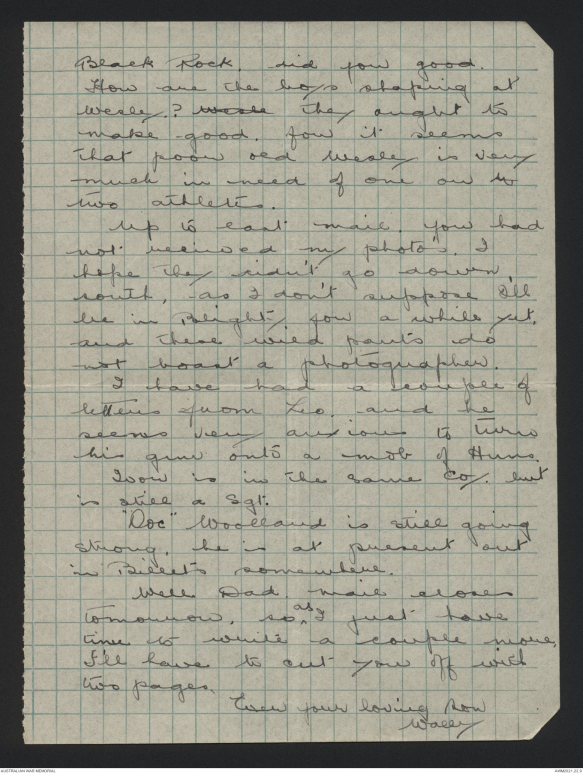 Black Rock. did you good.
How are the boys shaping at
Wesley? Wesle they ought to
make good. for it seems
that poor old Wesley is very
much in need of one or to
two athletes.
Up to last mail. you had
not received my photo's. I
hope they didn't go down
south, as I don't suppose I'll
be in Blighty for a while yet.
and these wild parts do
not boast a photographer.
I have had a couple of
letters from Leo. and he
seems very anxious to turn
his gun onto a mob of Huns.
is in the same Coy. but
is still a Sgt.
"Doc" Woolland is still going
strong, he is at present out
in Billets somewhere.
Well Dad. mail closes
tomorrow, so as I just have
time to write a couple more,
I'll have to cut you off with
two pages.
Ever your loving Son
Wally
AUSTRALIAN WAR MEMORIAL